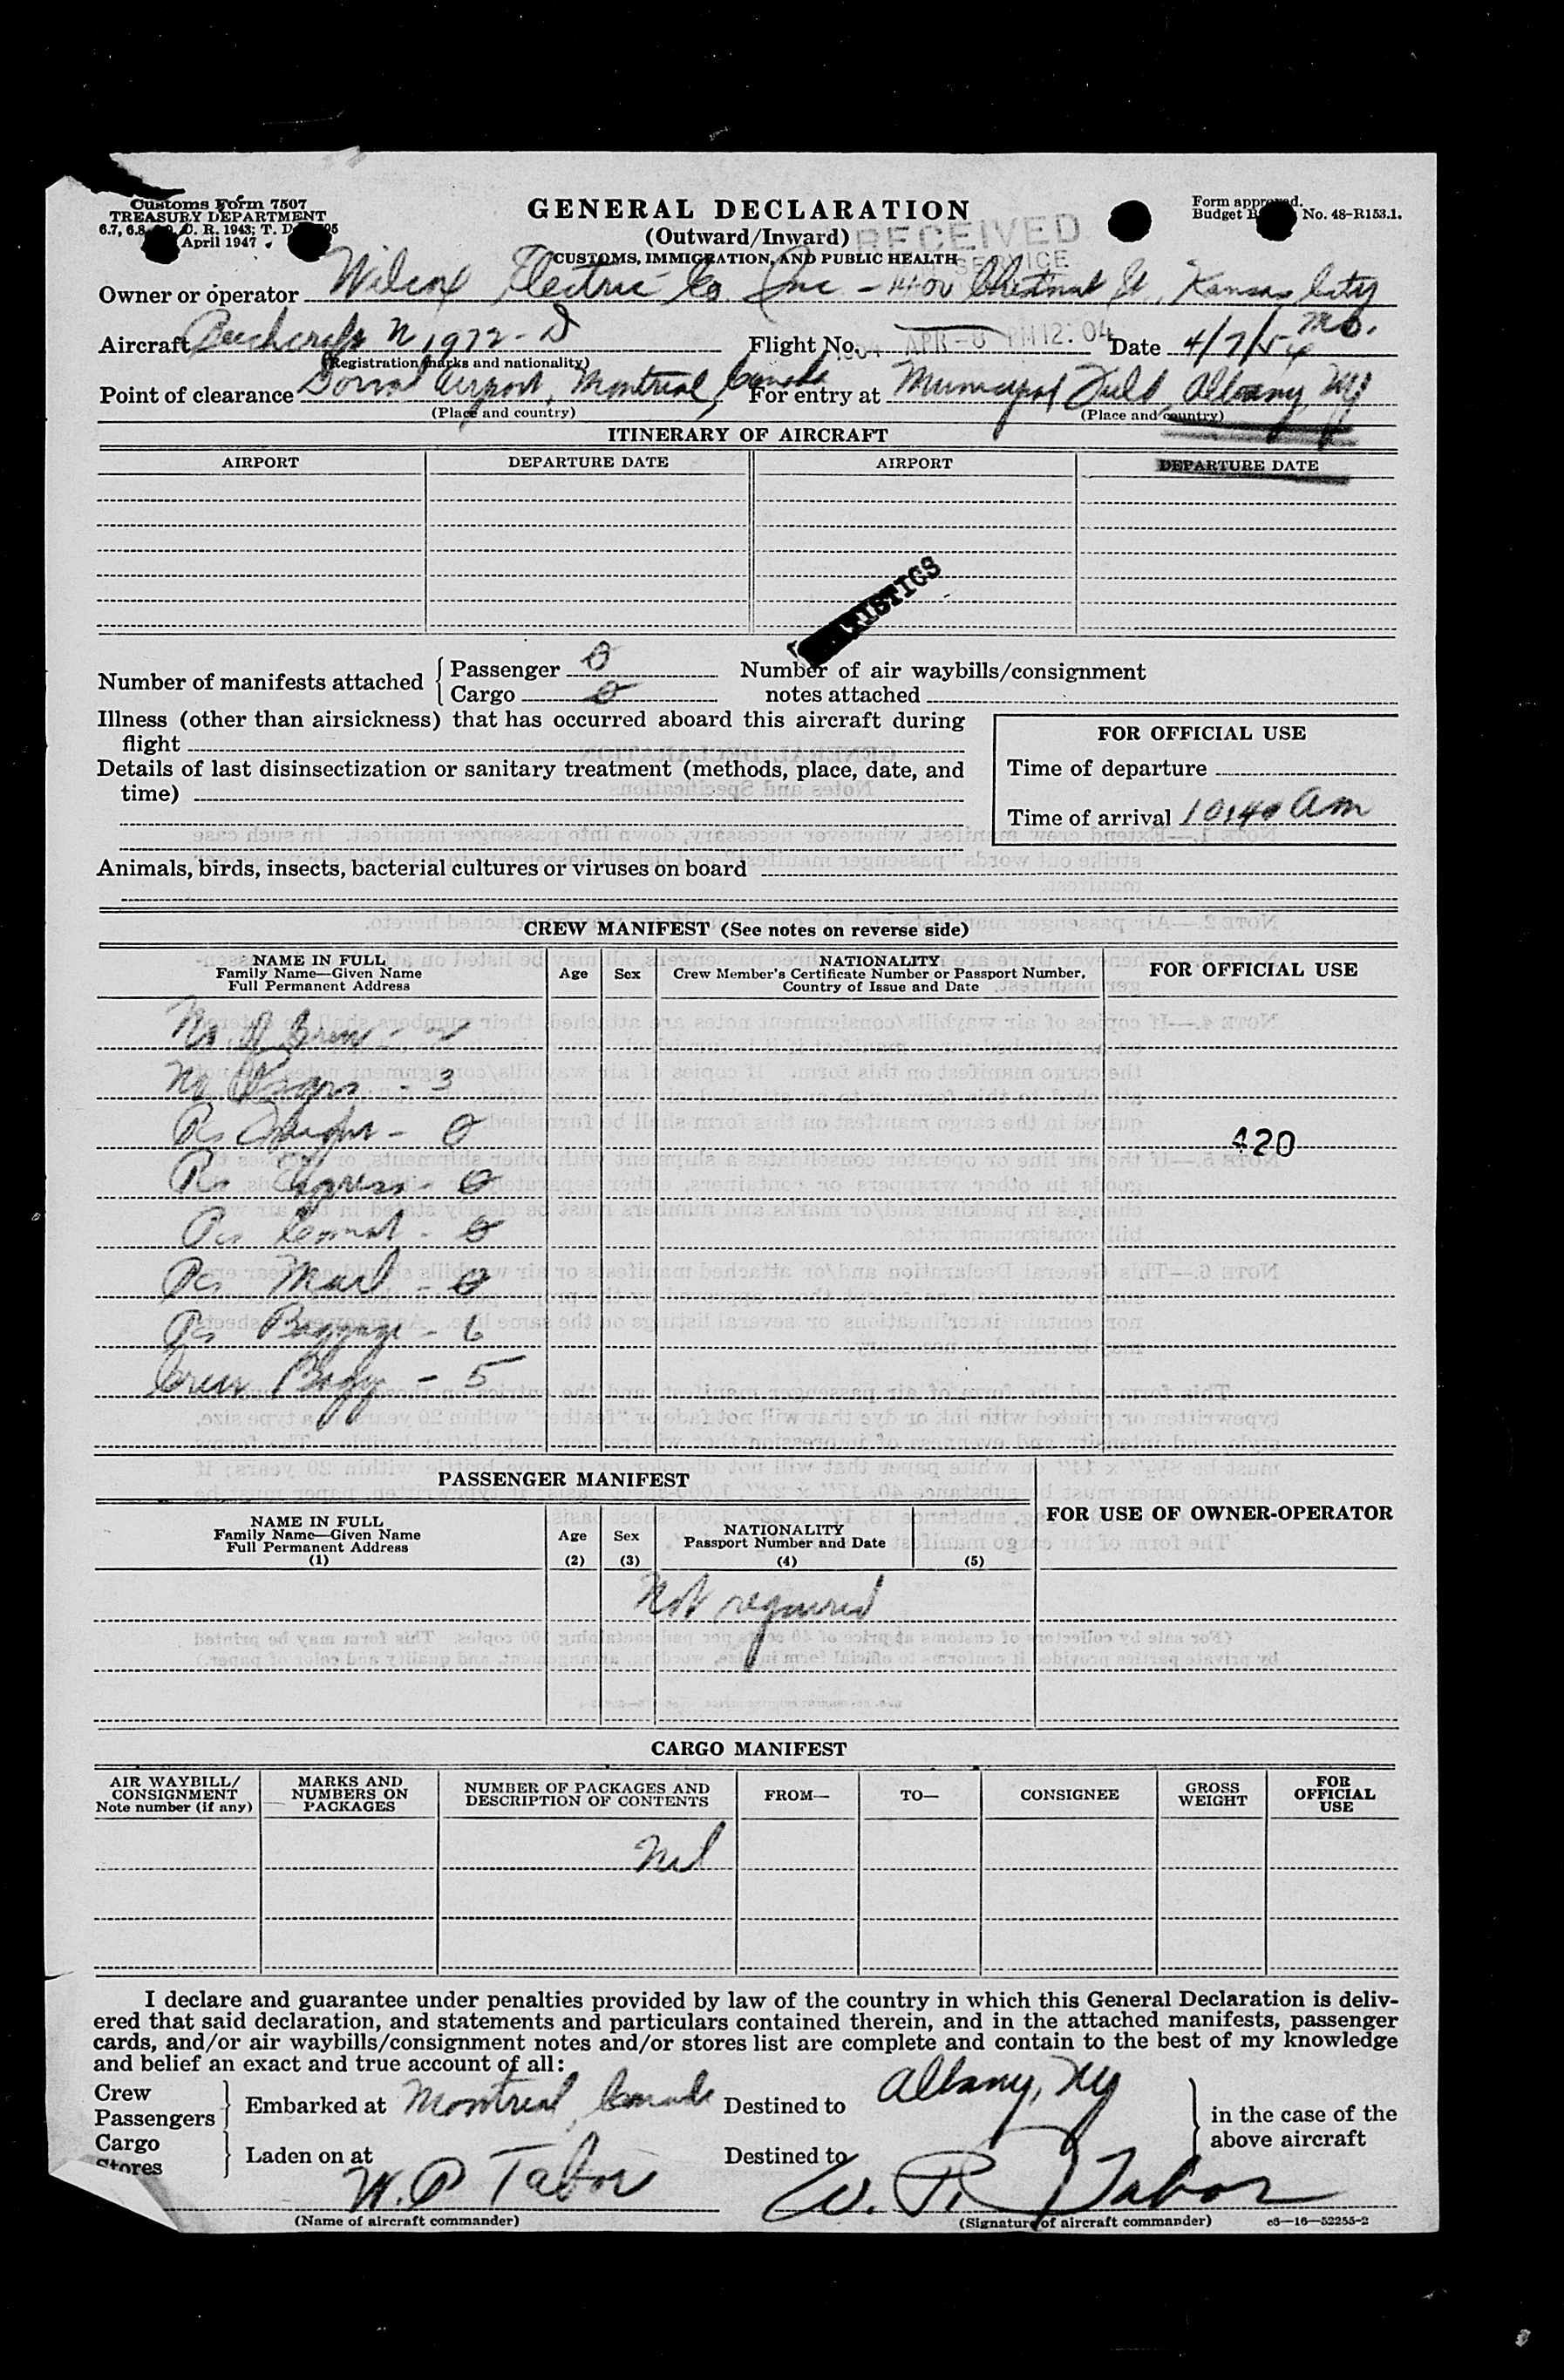 Customs Form 7507
TREASURY DEPARTMENT
6.7, 6.8, C. R. 1943; T. D.
April 1947
GENERAL DECLARATION
(Outward/Inward)
CUSTOMS, IMMIGRATION, AND PUBLIC HEALTH
Form approved.
Budget No. 48-R153.1.
RECEIVED
SERVICE
Owner or operator Wilcox Electric Co Inc - 1400 Chestnut St., Kansas City
Mo.
Aircraft Beechcraft N 1972-D Flight No. Date 4/7/54
APR-8 PM 12:04
(Registration marks and nationality)
Point of clearance Dorval Airport, Montreal, Canada For entry at Municipal Field, Albany, NY
(Place and country) (Place and country)
ITINERARY OF AIRCRAFT
AIRPORT DEPARTURE DATE AIRPORT DEPARTURE DATE
Number of manifests attached Passenger 0
Cargo 0
Number of air waybills/consignment
notes attached
Illness (other than airsickness) that has occurred aboard this aircraft during
flight
Details of last disinsectization or sanitary treatment (methods, place, date, and
time)
FOR OFFICIAL USE
Time of departure
Time of arrival 10:40 am
Animals, birds, insects, bacterial cultures or viruses on board
CREW MANIFEST (See notes on reverse side)
NAME IN FULL
Family Name—Given Name
Full Permanent Address
Age
Sex
NATIONALITY
Crew Member's Certificate Number or Passport Number,
Country of Issue and Date
FOR OFFICIAL USE
No. of Crew - 2
No. Psgrs - 3
Pcs Freight - 0
420
Pcs Express - 0
Pcs Comat - 0
Pcs Mail - 0
Pcs Baggage - 6
Crew Bagg - 5
PASSENGER MANIFEST
FOR USE OF OWNER-OPERATOR
NAME IN FULL
Family Name—Given Name
Full Permanent Address
(1)
Age
(2)
Sex
(3)
NATIONALITY
Passport Number and Date
(4)
(5)
Not required
CARGO MANIFEST
AIR WAYBILL/
CONSIGNMENT
Note number (if any)
MARKS AND
NUMBERS ON
PACKAGES
NUMBER OF PACKAGES AND
DESCRIPTION OF CONTENTS
FROM—
TO—
CONSIGNEE
GROSS
WEIGHT
FOR
OFFICIAL
USE
Nil
I declare and guarantee under penalties provided by law of the country in which this General Declaration is deliv-
ered that said declaration, and statements and particulars contained therein, and in the attached manifests, passenger
cards, and/or air waybills/consignment notes and/or stores list are complete and contain to the best of my knowledge
and belief an exact and true account of all:
Crew
Passengers
Embarked at Montreal, Canada Destined to Albany, NY
in the case of the
above aircraft
Cargo
Stores
Laden on at Destined to
W. P Tabor W. P. Tabor
(Name of aircraft commander) (Signature of aircraft commander) c3—16—52255-2